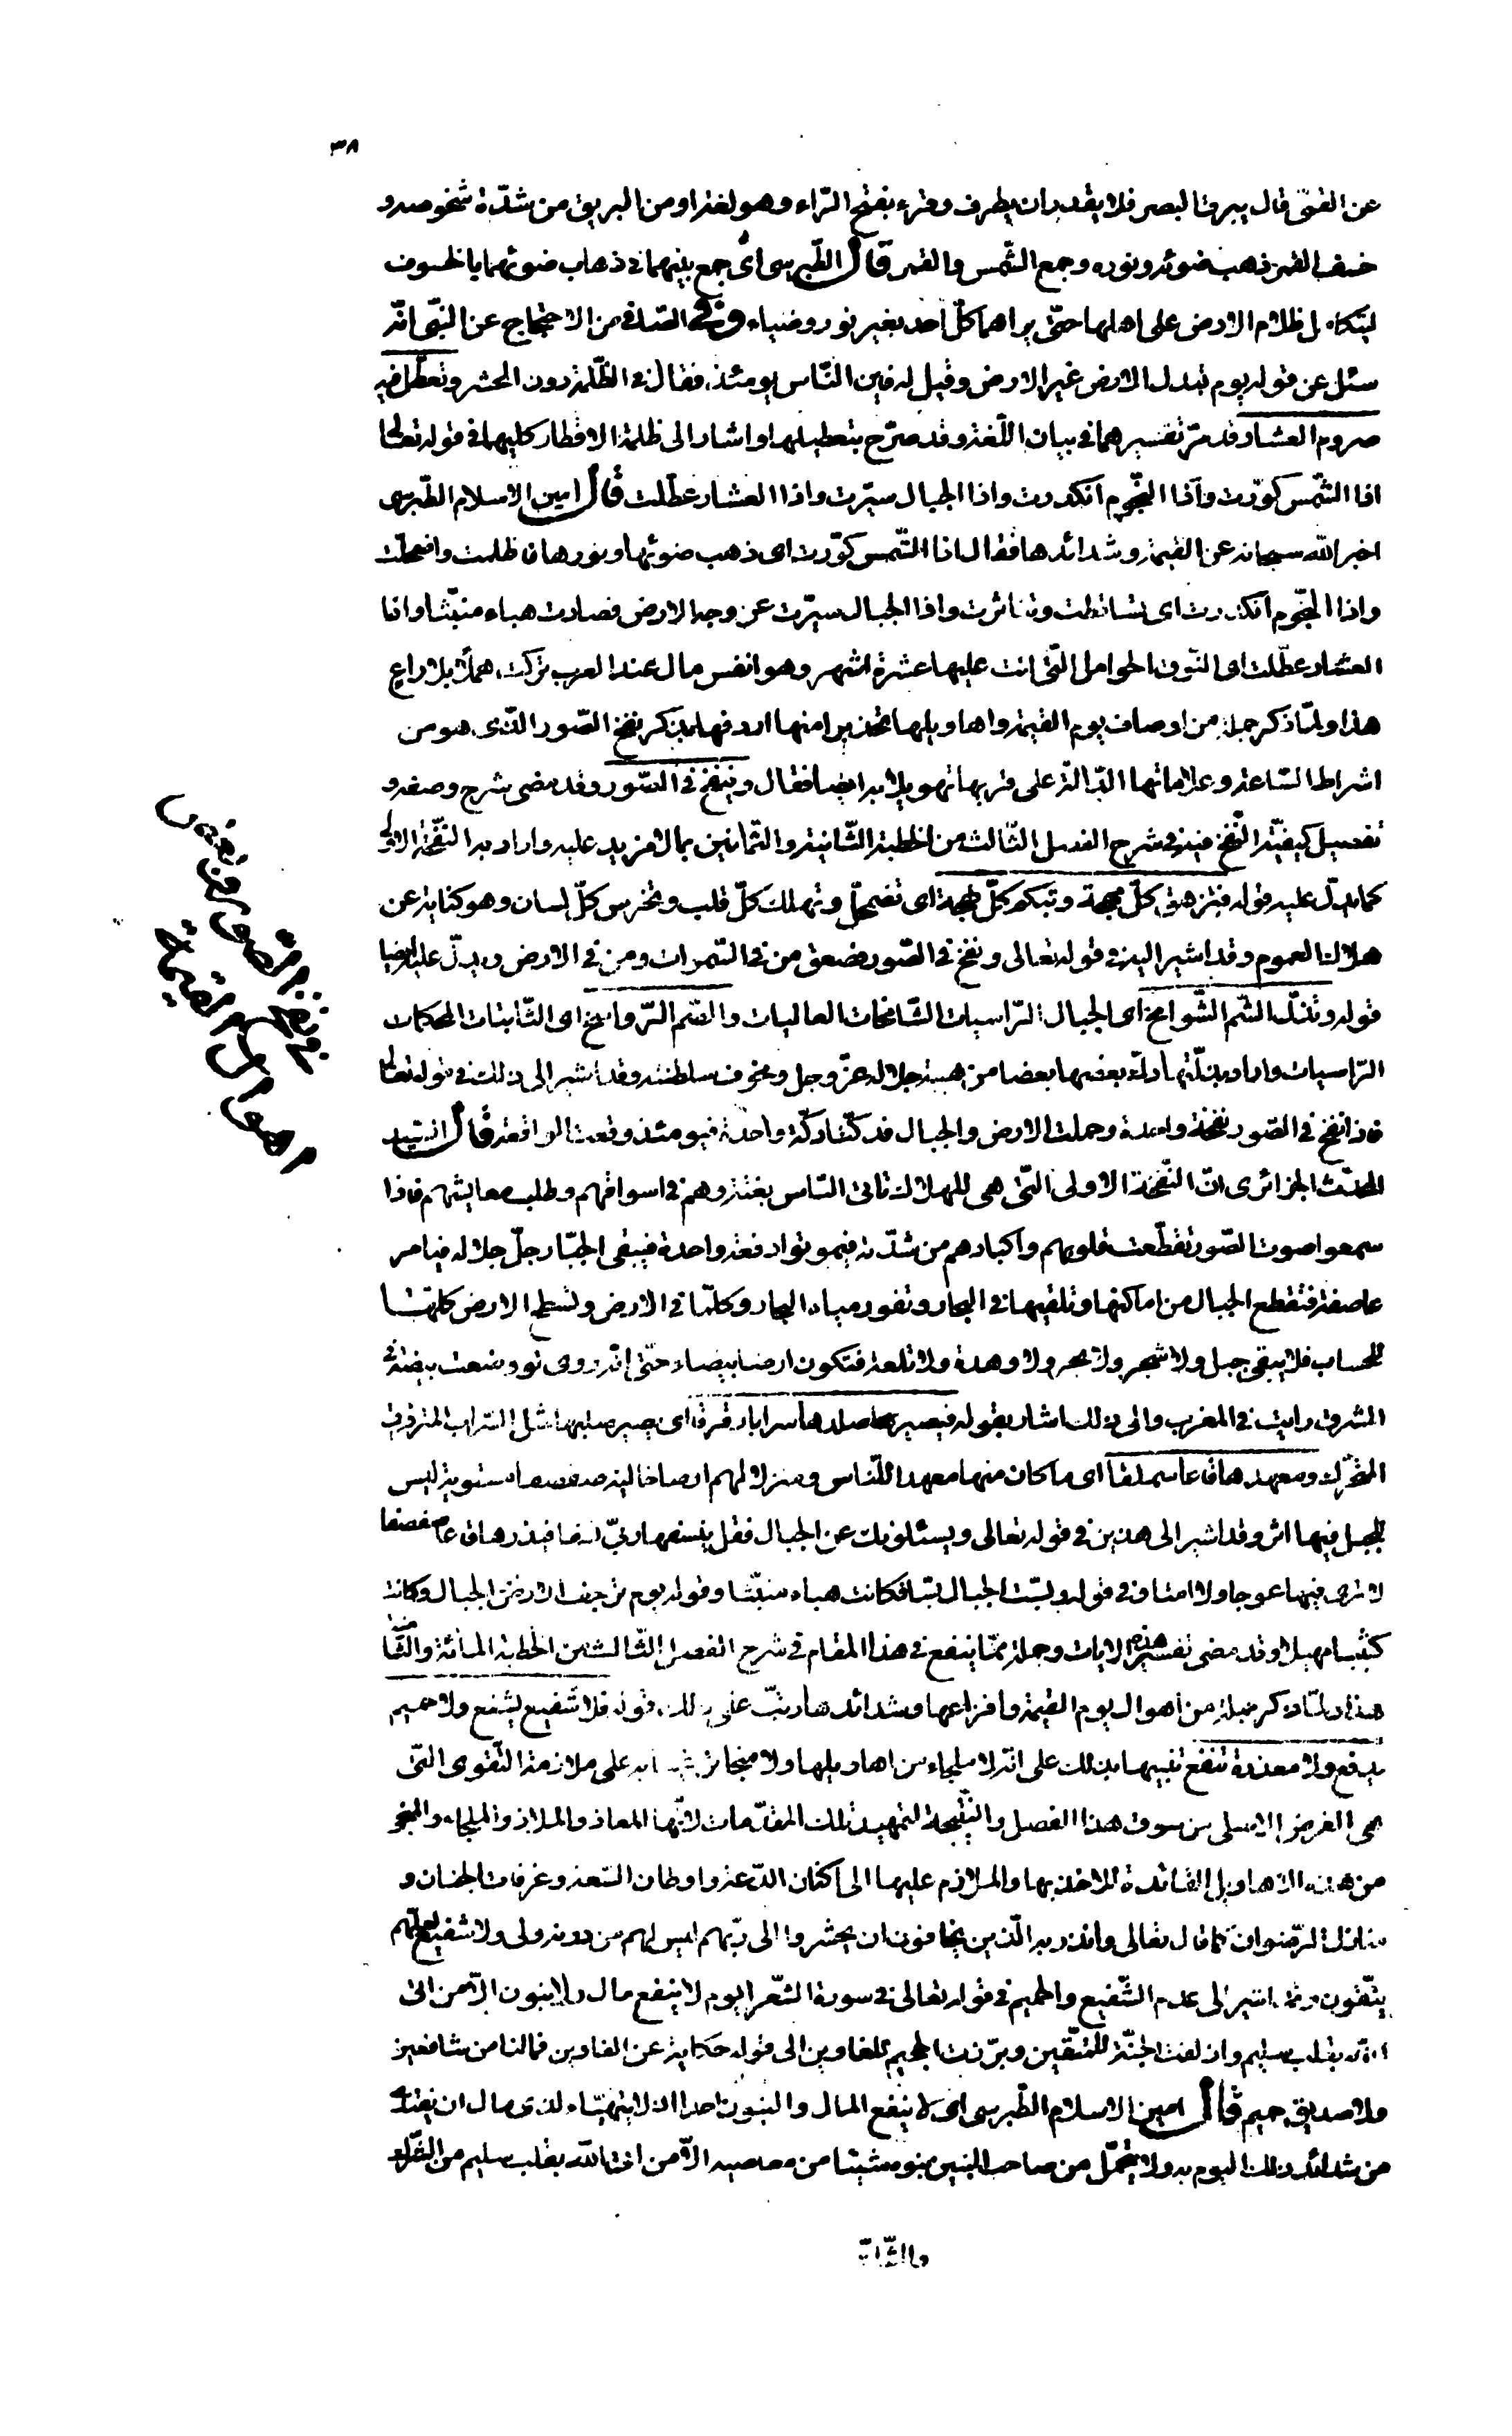 ٣٨
عن القمّى قال يبرق البصر فلا يقدر ان يطرف وقرء بفتح الرّاء وهو لغة او من البريق من شدّة شخوصه و
خسف القمر ذهب ضوئه ونوره وجمع الشّمس والقمر قال الطّبرسى اى جمع بينهما فى ذهاب ضوئهما بالخسوف
ليتكامل ظلام الارض على اهلها حتّى يراهما كلّ احد بغير نور وضياء وفى الصّافى من الاحتجاج عن النّبى انّه
سئل عن قوله يوم تبدل الارض غير الارض وقيل له فاين النّاس يومئذ، فقال فى الظّلمة دون المحشر وتعطّل فيه
صروم العشار قد مرّ تفسيرهما فى بيان اللّغة وقد صرّح بتعطيلها واشار الى ظلمة الاقطار كليهما فى قوله تعالى
اذا الشّمس كوّرت واذا النّجوم انكدرت واذا الجبال سيّرت واذا العشار عطّلت قال امين الاسلام الطّبرسى
اخبر اللّه سبحانه عن القيمة وشدائدها فقال اذا الشّمس كوّرت اى ذهب ضوئها ونورها فاظلمت واضمحلّت
واذا النّجوم انكدرت اى تساقطت وتناثرت واذا الجبال سيّرت عن وجه الارض فصارت هباء منبثّا واذا
العشار عطّلت اى النّوق الحوامل الّتى اتت عليها عشرة اشهر وهو انفس مال عند العرب تركت هملا بلا راع
هذا ولمّا ذكر جملة من اوصاف يوم القيمة واهاويلها تحذيرا منها اردفها بذكر نفخ الصّور الّذى هو من
اشراط السّاعة وعلاماتها الدّالّة على قربها تهويلا به ايضا فقال وينفخ فى الصّور وقد مضى شرح وصفه و
تفصيل كيفيّة النّفخ فيه فى شرح الفصل الثّالث من الخطبة الثّانية والثّمانين بما لا مزيد عليه واراد به النّفخة الاولى
كما يدلّ عليه قوله فتزهق كلّ مهجة وتبكم كلّ لهجة اى تضمحلّ وتهلك كلّ قلب وتخرس كلّ لسان وهو كناية عن
هلاك العموم وقد اشير اليه فى قوله تعالى ونفخ فى الصّور فصعق من فى السّموات ومن فى الارض ويدلّ عليه ايضا
قوله وتذلّ الشّم الشّوامخ اى الجبال الرّاسيات الشّامخات العاليات والصّم الرّواسخ اى الثّابتات المحكمات
الرّاسيات واراد بذلّتها دكّ بعضها بعضا من هيبة جلاله عزّ وجل ومخوف سلطنته وقد اشير الى ذلك فى قوله تعالى
فاذا نفخ فى الصّور نفخة واحدة وحملت الارض والجبال فدكّتا دكّة واحدة فيومئذ وقعت الواقعة قال السّيد
المحدّث الجزائرى انّ النّفخة الاولى الّتى هى للهلاك تاتى النّاس بغتة وهم فى اسواقهم وطلب معايشهم فاذا
سمعوا صوت الصّور تقطّعت قلوبهم واكبادهم من شدّته فيموتوا دفعة واحدة فيبقى الجبّار جلّ جلاله فيامر
عاصفة فتقطع الجبال من اماكنها وتلقيها فى البحار وتفور مياه البحار وكلّما فى الارض وتسطح الارض كلّها
للحساب فلا يبقى جبل ولا شجر ولا بحر ولا وهدة ولا تلعة فتكون ارضا بيضاء حتّى انّه روى لو وضعت بيضة فى
المشرق رايت فى المغرب والى ذلك اشار بقوله فيصير صلدها سرابا رقرقا اى يصير صلبها مثل السّراب المترقرق
المتحرّك ومعهدها قاعا سملقا اى ما كان منها معهدا للنّاس ومنزلا لهم ارضا خالية صفصفا مستوية ليس
للجبل فيها اثر وقد اشير الى هذين فى قوله تعالى ويسئلونك عن الجبال فقل ينسفها ربّى نسفا فيذرها قاعا صفصفا
لا ترى فيها عوجا ولا امتا وفى قوله وبسّت الجبال بسّا فكانت هباء منبثّا وقوله يوم ترجف الارض والجبال وكانت
كثيبا مهيلا وقد مضى تفسير هذه الايات وجملة ممّا ينفع فى هذا المقام فى شرح الفصل الثّالث من الخطبة المائة والثّامنة
هذا ولمّا ذكر جملة من اهوال يوم القيمة وافزاعها وشدائدها رتّب على ذلك قوله فلا شفيع يشفع ولا حميم
يدفع ولا معذرة تنفع تنبيها بذلك على انّه لا ملجاء من اهاويلها ولا منجا على ملازمة التّقوى الّتى
هى الغرض الاصلى من سوق هذا الفصل والنّتيجة لتمهيد تلك المقدّمات لانّها المعاذ والملاذ والملجاء والمنجى
من هذه الاهاويل القائدة للاخذ بها والملازم عليها الى اكنان الدّعة واوطان السّعة وغرفات الجنان و
منازل الرّضوان كما قال تعالى وانذر به الّذين يخافون ان يحشروا الى ربّهم ليس لهم من دونه ولى ولا شفيع لعلّهم
يتّقون وقد اشير الى عدم الشّفيع والحميم فى قوله تعالى فى سورة الشّعرا يوم لا ينفع مال ولا بنون الّا من اتى
اللّه بقلب سليم وازلفت الجنّة للمتّقين وبرّزت الجحيم للغاوين الى قوله حكاية عن الغاوين فما لنا من شافعين
ولا صديق حميم قال امين الاسلام الطّبرسى اى لا ينفع المال والبنون احدا اذ لا يتهيّاء لذى مال ان يفتدى
من شدائد ذلك اليوم به ولا يتحمّل من صاحب البنين بنوه شيئا من معاصيه الّا من اتى اللّه بقلب سليم من الشّرك
والشّك
فى نفخ الصور وبعض
اهوال القيمة